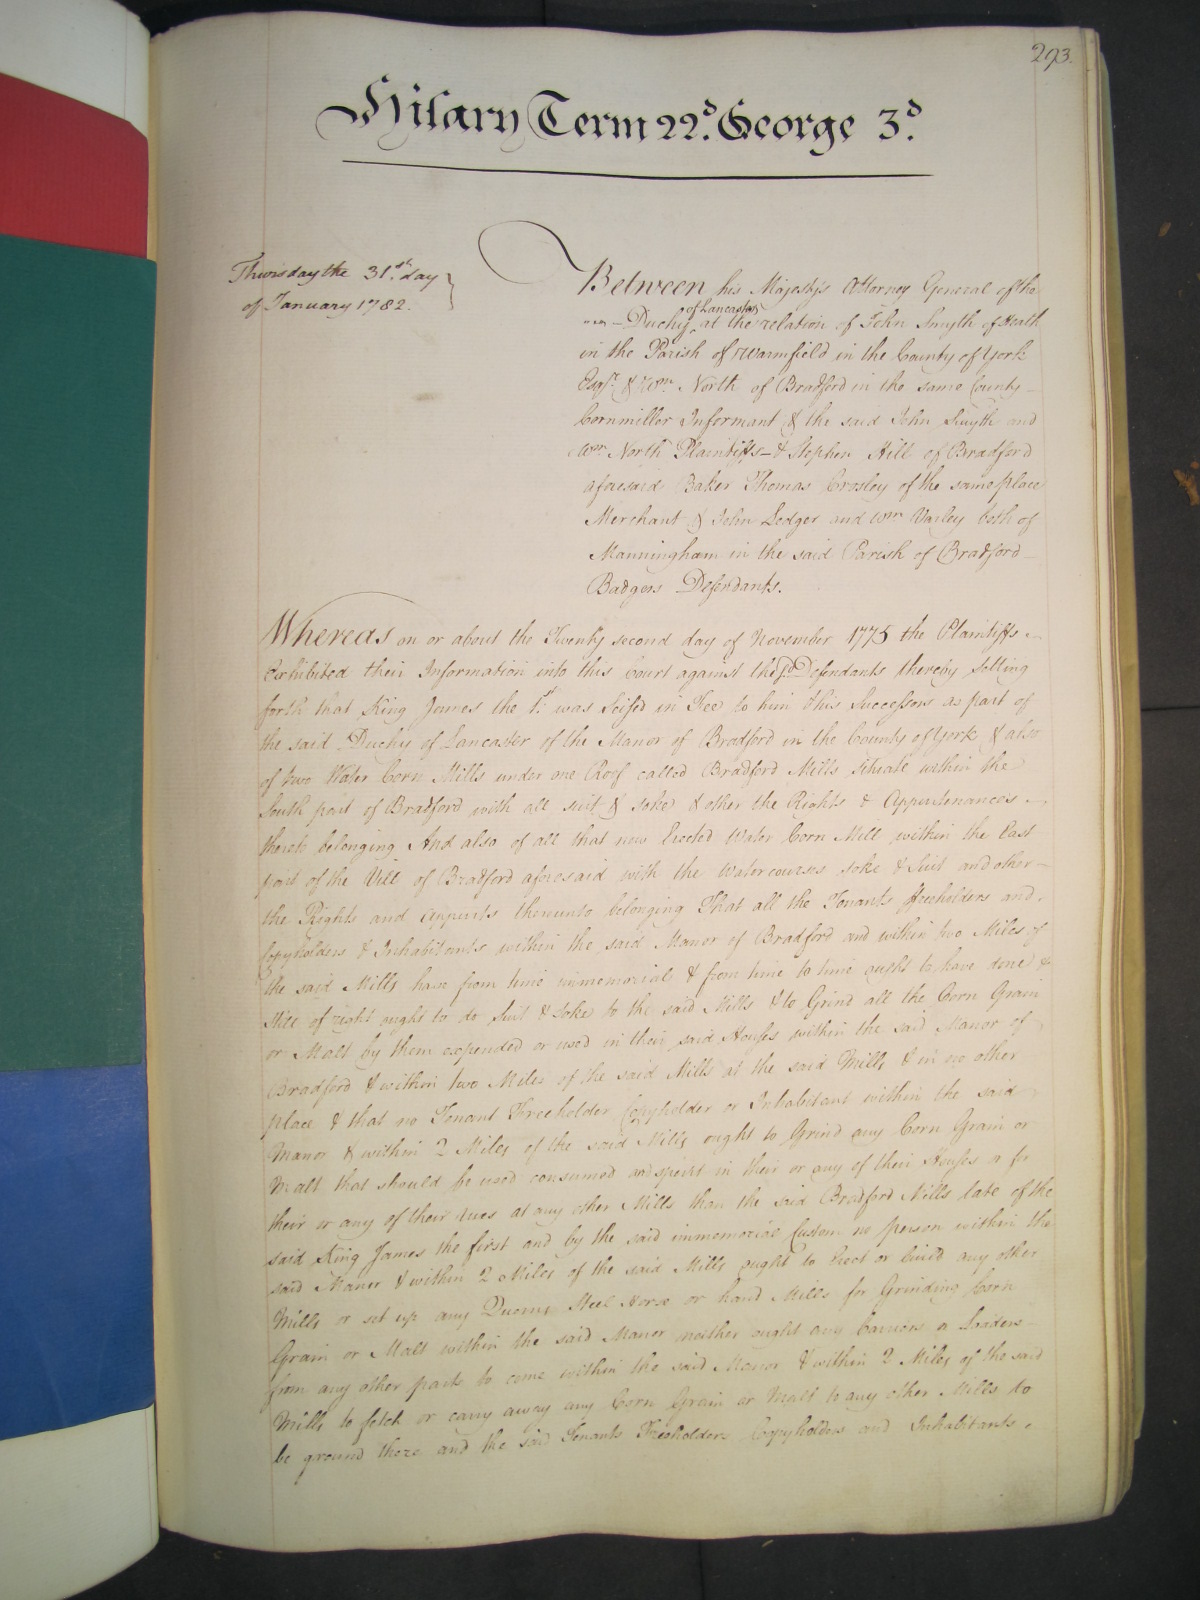 293.
Hilary Term 22.d George 3.d
Thursday the 31.st day
of January 1782.
Between his Majesty's Attorney General of the
Duchy of Lancaster at the relation of John Smyth of Heath
in the Parish of Warmfield in the County of York
Esqr. & Wm. North of Bradford in the same County
Cornmiller Informant & the said John Smyth and
Wm. North Plaintiffs & Stephen Hill of Bradford
aforesaid Baker Thomas Crosley of the same place
Merchant & John Ledger and Wm. Varley both of
Manningham in the said Parish of Bradford
Badgers Defendants.
Whereas on or about the Twenty second day of November 1775 the Plaintiffs
Exhibited their Information into this Court against the sd. Defendants thereby setting
forth that King James the 1st. was Seised in Fee to him & his Successors as part of
the said Duchy of Lancaster of the Manor of Bradford in the County of York & also
of two Water Corn Mills under one Roof called Bradford Mills situate within the
South part of Bradford with all suit & soke & other the Rights & Appurtenances
thereto belonging And also of all that new Erected Water Corn Mill within the East
part of the Vill of Bradford aforesaid with the Watercourses soke & Suit and other
the Rights and Appurts thereunto belonging That all the Tenants ffreeholders and
Copyholders & Inhabitants within the said Manor of Bradford and within two Miles of
the said Mills have from time immemorial & from time to time ought to have done &
still of right ought to do Suit & Soke to the said Mills & to Grind all the Corn Grain
or Malt by them expended or used in their said Houses within the said Manor of
Bradford & within two Miles of the said Mills at the said Mills & in no other
place & that no Tenant Freeholder Copyholder or Inhabitant within the said
Manor & within 2 Miles of the said Mills ought to Grind any Corn Grain or
Malt that should be used consumed and spent in their or any of their Houses or for
their or any of their uses at any other Mills than the said Bradford Mills late of the
said King James the first and by the said immemorial Custom no person within the
said Manor & within 2 Miles of the said Mills ought to Erect or build any other
Mills or set up any Querns Steel Horse or hand Mills for Grinding Corn
Grain or Malt within the said Manor neither ought any Carriers or Loaders
from any other parts to come within the said Manor & within 2 Miles of the said
Mills to fetch or carry away any Corn Grain or Malt to any other Mills to
be ground there and the said Tenants Freeholders Copyholders and Inhabitants